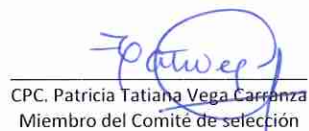 CPC. Patricia Tatiana Vega Carranza
Miembro del Comité de selección